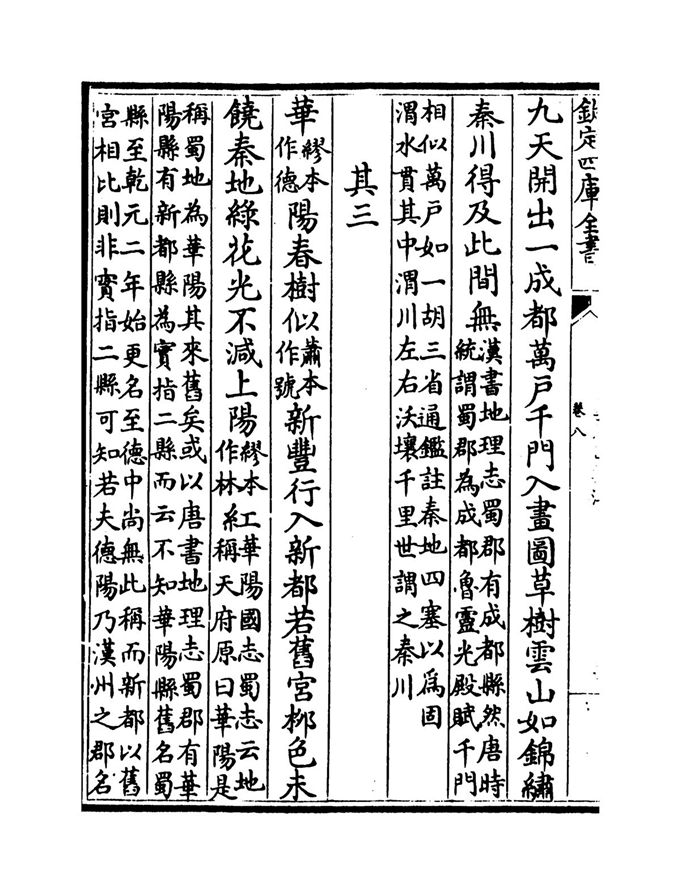 欽定四庫全書
卷八
九天開出一成都萬戶千門入畫圖草樹雲山如錦繡
秦川得及此間無漢書地理志蜀郡有成都縣然唐時
統謂蜀郡為成都魯靈光殿賦千門
相似萬戶如一胡三省通鑑註秦地四塞以為固
渭水貫其中渭川左右沃壤千里世謂之秦川
其三
華繆本作德陽春樹似蕭本作號新豐行入新都若舊宮栁色未
饒秦地綠花光不減上陽繆本作林紅華陽國志蜀志云地
稱天府原曰華陽是
稱蜀地為華陽其來舊矣或以唐書地理志蜀郡有華
陽縣有新都縣為實指二縣而云不知華陽縣舊名蜀
縣至乾元二年始更名至德中尚無此稱而新都以舊
宮相比則非實指二縣可知若夫德陽乃漢州之郡名